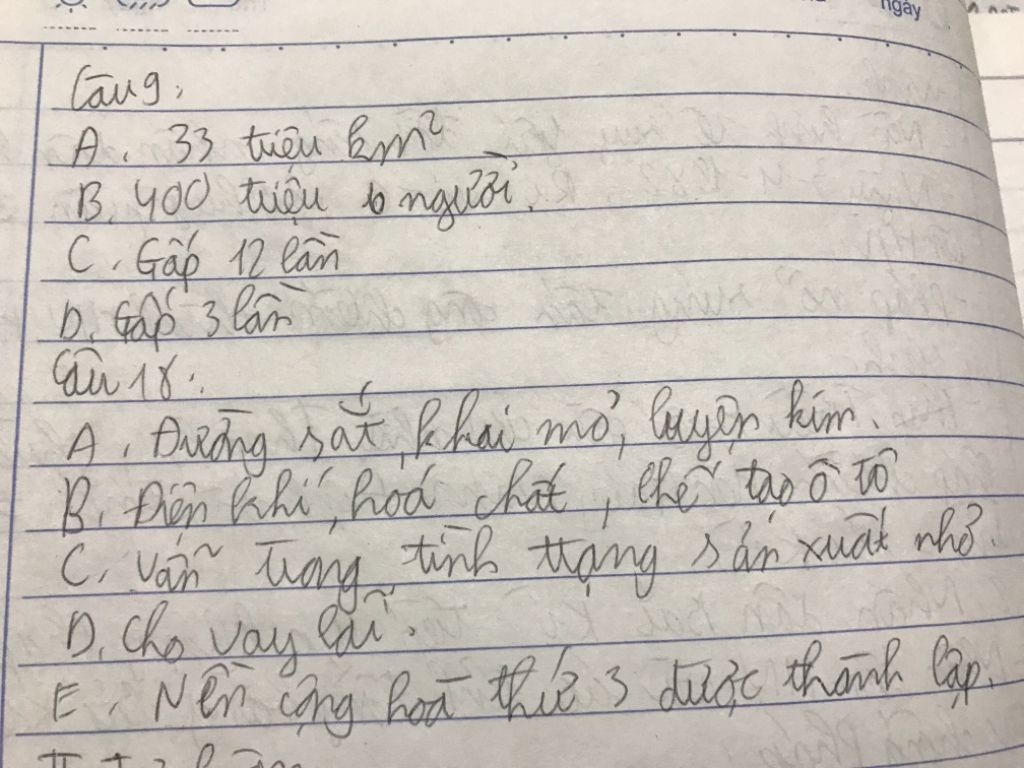 ngày
Câu 9:
A. 33 triệu km²
B. 400 triệu người.
C. Gấp 12 lần
D. Gấp 3 lần
Câu 18:
A. Đường sắt, khai mỏ, luyện kim.
B. Điện khí, hoá chất, chế tạo ô tô
C. Vẫn trong tình trạng sản xuất nhỏ.
D. Cho vay lãi.
E. Nền cộng hoà thứ 3 được thành lập.